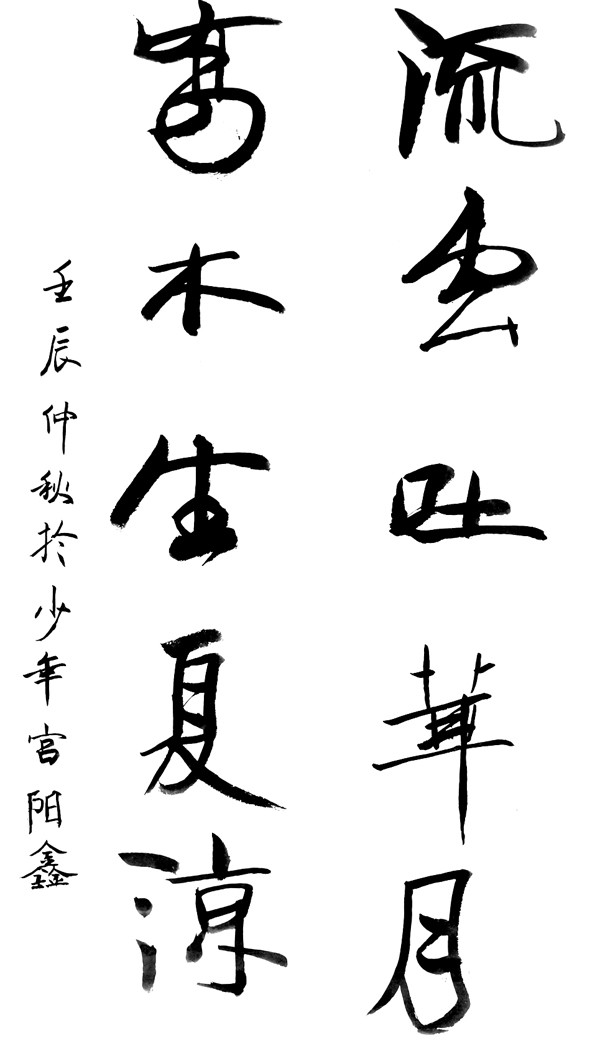 流雲吐華月
嘉木生夏涼
壬辰仲秋於少年宫阳鑫